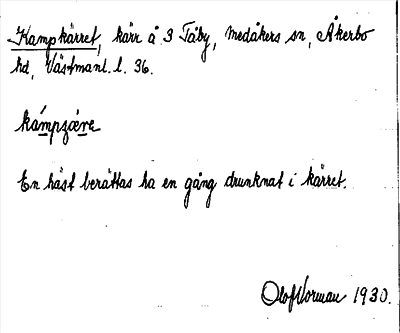 Kampkärret, kärr å 3 Täby, Medåkers sn, Åkerbo
hd, Västmanl. l. 36.
kámpʒære
En häst berättas ha en gång drunknat i kärret.
Olof Norman 1930.